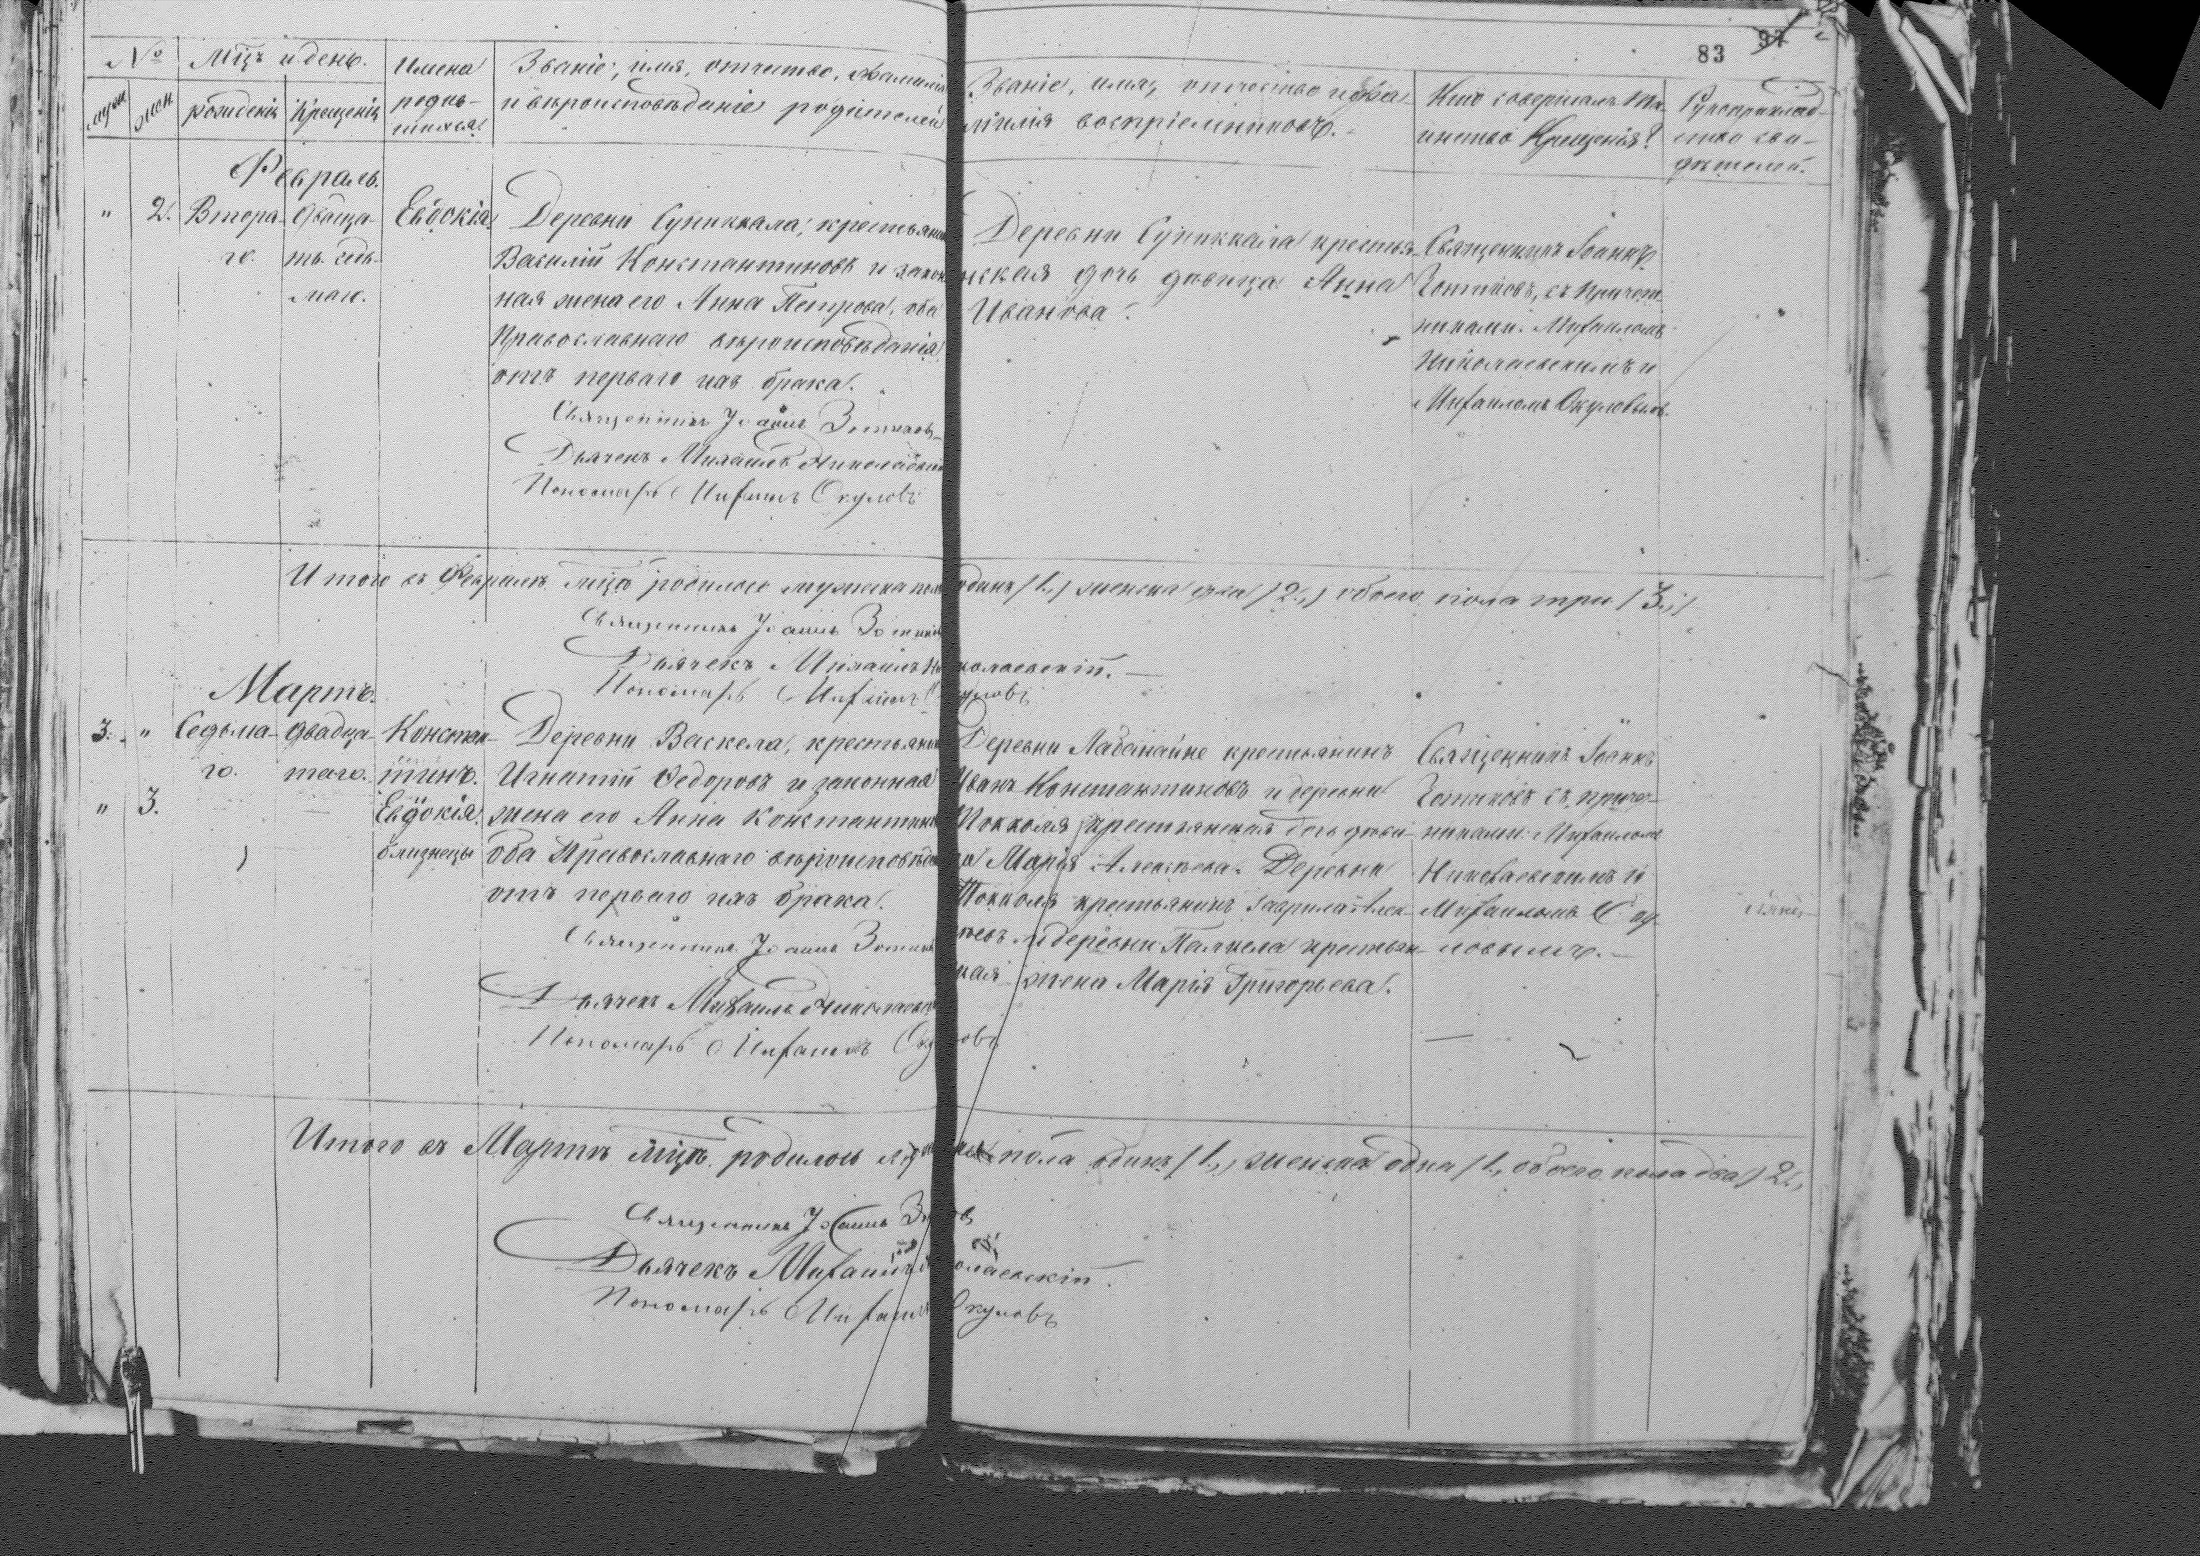 83 97
№ Мѣцъ и день. Имена Званіе, имя, отчество, фамилія Званіе, имя, отчество и фа- Кто совершалъ та- Рукоприклад-
муж. жен. рожденія крещенія родив- и вѣроисповѣданіе родителей милія воспріемниковъ. инство Крещенія? ство сви-
шихся. дѣтелей.
Февраль.
" 2. Втора- двадца- Евдокія. Деревни Суйккала, крестьянинъ
го. ть седь- Василій Константиновъ и закон
маго. ная жена его Анна Петрова, оба
Православнаго вѣроисповѣданія
отъ перваго ихъ брака.
Священникъ Іоаннъ Зотиковъ
Дьячекъ Михаилъ Николаевскій
Пономарь Михаилъ Окуловъ
Деревни крестья-
нская дочь дѣвица Анна
Иванова.
Священникъ Іоаннъ
Зотиковъ, съ причет-
никами: Михаиломъ
Николаевскимъ и
Михаиломъ Окуловымъ.
Итого въ Февралѣ мѣцѣ родилось мужеска пола одинъ (1.,) женска два (2.,) обоего пола три (3.,)
Священникъ Іоаннъ Зотиковъ
Дьячекъ Михаилъ Николаевскій.
Пономарь Михаилъ Окуловъ
Мартъ.
3. " Седьма- двадца- Констан- Деревни Васкела, крестьянинъ
го. таго. тинъ. Игнатій Ѳедоровъ и законная
" 3. Евдокія. жена его Анна Константинова
близнецы оба Православнаго вѣроисповѣданія
отъ перваго ихъ брака.
Священникъ Іоаннъ Зотиковъ
Дьячекъ Михаилъ Николаевскій
Пономарь Михаилъ Окуловъ
Деревни крестьянинъ
Иванъ Константиновъ и деревни
крестьянская дочь дѣви-
ца Марія Алексѣева. Деревни
крестьянинъ Гаврила Алек-
сѣевъ и деревни Палкела крестьян-
ская жена Марія Григорьева.
Священникъ Іоаннъ
Зотиковъ съ причет-
никами: Михаиломъ
Николаевскимъ и
Михаиломъ Оку-
ловымъ.
Итого въ Мартѣ мѣцѣ родилось мужеска пола одинъ (1.,) женска одна (1., обоего пола два) 2.,
Священникъ Іоаннъ Зотиковъ
Дьячекъ Михаилъ Николаевскій.
Пономарь Михаилъ Окуловъ